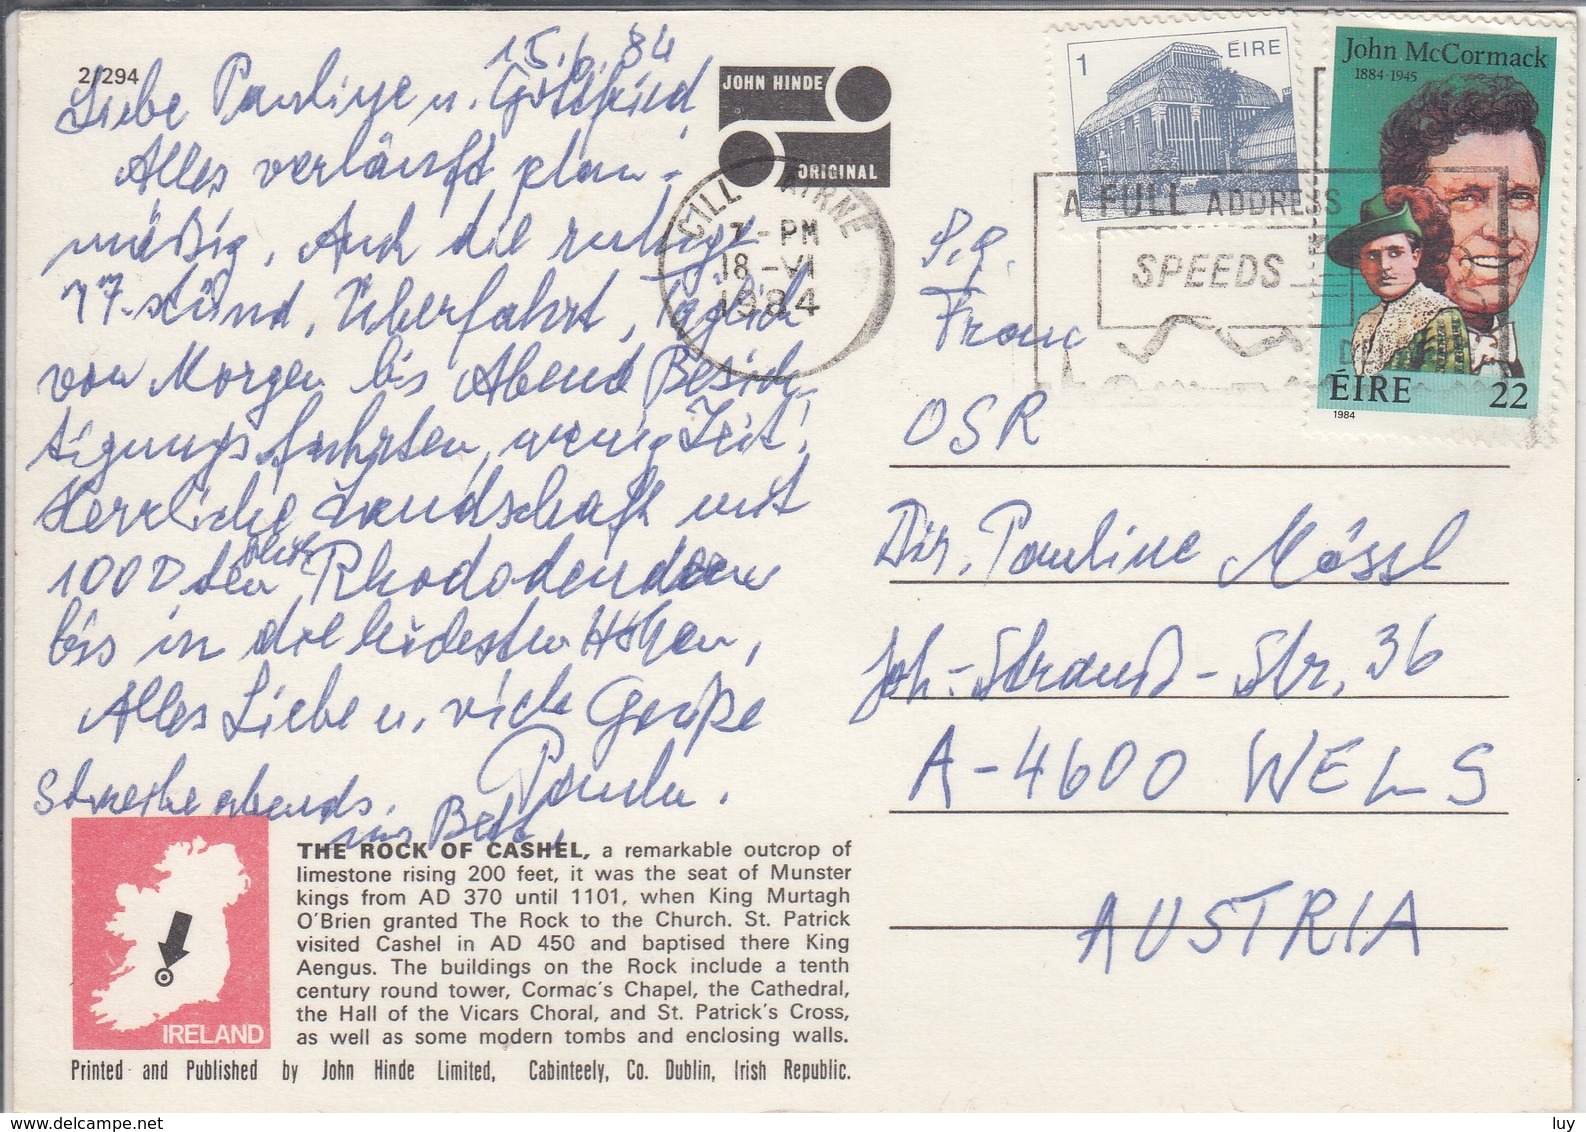 2/294
15. 6. 84
Liebe Pauline u. Gottfried,
Alles verläuft plan-
mäßig. Auch die ruhige
17-stünd. Überfahrt, Täglich
von Morgen bis Abend Besich-
tigungsfahrten, wenig Zeit!
Herrliche Landschaft mit
1000 den Rhododendren
bis in die Höhen,
Alles Liebe u. viele Grüße
Paula.
abends.
ins Bett.
JOHN HINDE
ORIGINAL
CILL AIRNE
7-PM
18-VI
1984
1
ÉIRE
John McCormack
1884-1945
ÉIRE 22
1984
A FULL ADDRESS
SPEEDS
S.g.
Frau
OSR
Dir. Pauline Mössl
Joh.-Strauß-Str. 36
A-4600 WELS
AUSTRIA
IRELAND
THE ROCK OF CASHEL, a remarkable outcrop of
limestone rising 200 feet, it was the seat of Munster
kings from AD 370 until 1101, when King Murtagh
O'Brien granted The Rock to the Church. St. Patrick
visited Cashel in AD 450 and baptised there King
Aengus. The buildings on the Rock include a tenth
century round tower, Cormac's Chapel, the Cathedral,
the Hall of the Vicars Choral, and St. Patrick's Cross,
as well as some modern tombs and enclosing walls.
Printed and Published by John Hinde Limited, Cabinteely, Co. Dublin, Irish Republic.
www.delcampe.net
luy